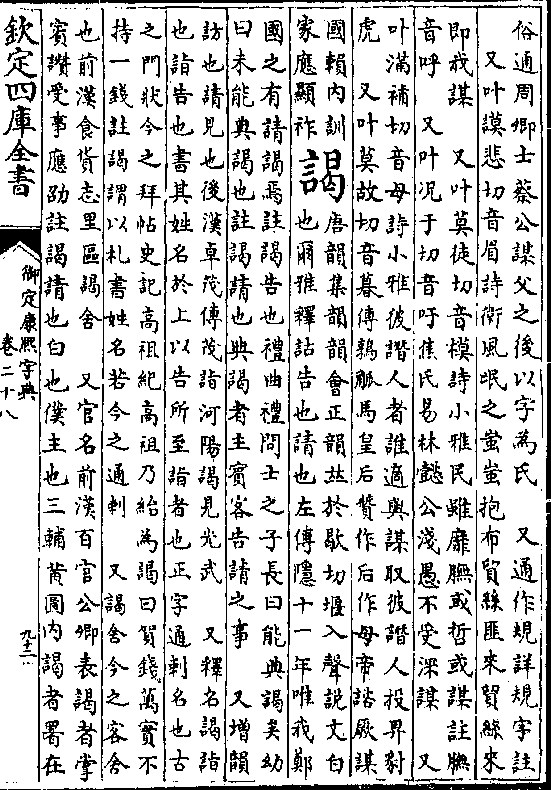 俗通周卿士蔡公謀父之後以字為氏　又通作規詳規字註
又叶謨悲切音眉詩衛風氓之蚩蚩抱布貿絲匪來貿絲來
即我謀　又叶莫徒切音模詩小雅民雖靡膴或哲或謀註膴
音呼　又叶況于切音吁焦氏易林懿公淺愚不受深謀　又
叶滿補切音母詩小雅彼譖人者誰適與謀取彼譖人投畀豺
虎　又叶莫故切音暮傅鶉觚馬皇后贊作后作母帝諮厥謀
國賴內訓
家應顯祚
謁
唐韻集韻韻會正韻𠀤於歇切堰入聲說文白
也爾雅釋詁告也請也左傳隱十一年唯我鄭
國之有請謁焉註謁告也禮曲禮問士之子長曰能典謁矣幼
曰未能典謁也註謁請也典謁者主賓客告請之事　又增韻
訪也請見也後漢卓茂傳茂詣河陽謁見光武　又釋名謁詣
也詣告也書其姓名於上以告所至詣者也正字通刺名也古
之門狀今之拜帖史記高祖紀高祖乃紿為謁曰賀錢萬實不
持一錢註謁謂以札書姓名若今之通刺　又謁舍今之客舍
也前漢食貨志里區謁舍　又官名前漢百官公卿表謁者掌
賓讚受事應劭註謁請也白也僕主也三輔黃圖內謁者署在
欽定四庫全書
御定康熙字典
卷二十八